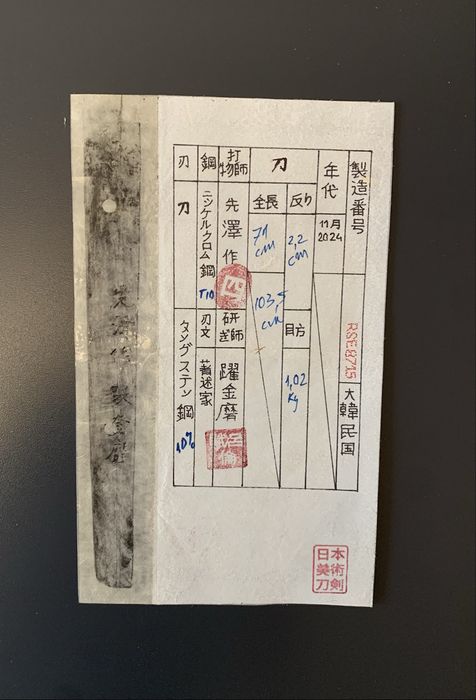 製造番号
RSE8715
大韓民国
年代
11月
2024
刀
反り
2,2
cm
目方
1,02
Kg
全長
71
cm
103,5
cm
打物師
先澤作
研ぎ師
躍金磨
鋼
ニッケルクロム鋼
T10
刃文
著述家
刃
刀
タングステン鋼
10%
先澤作
日本
美術
刀剣